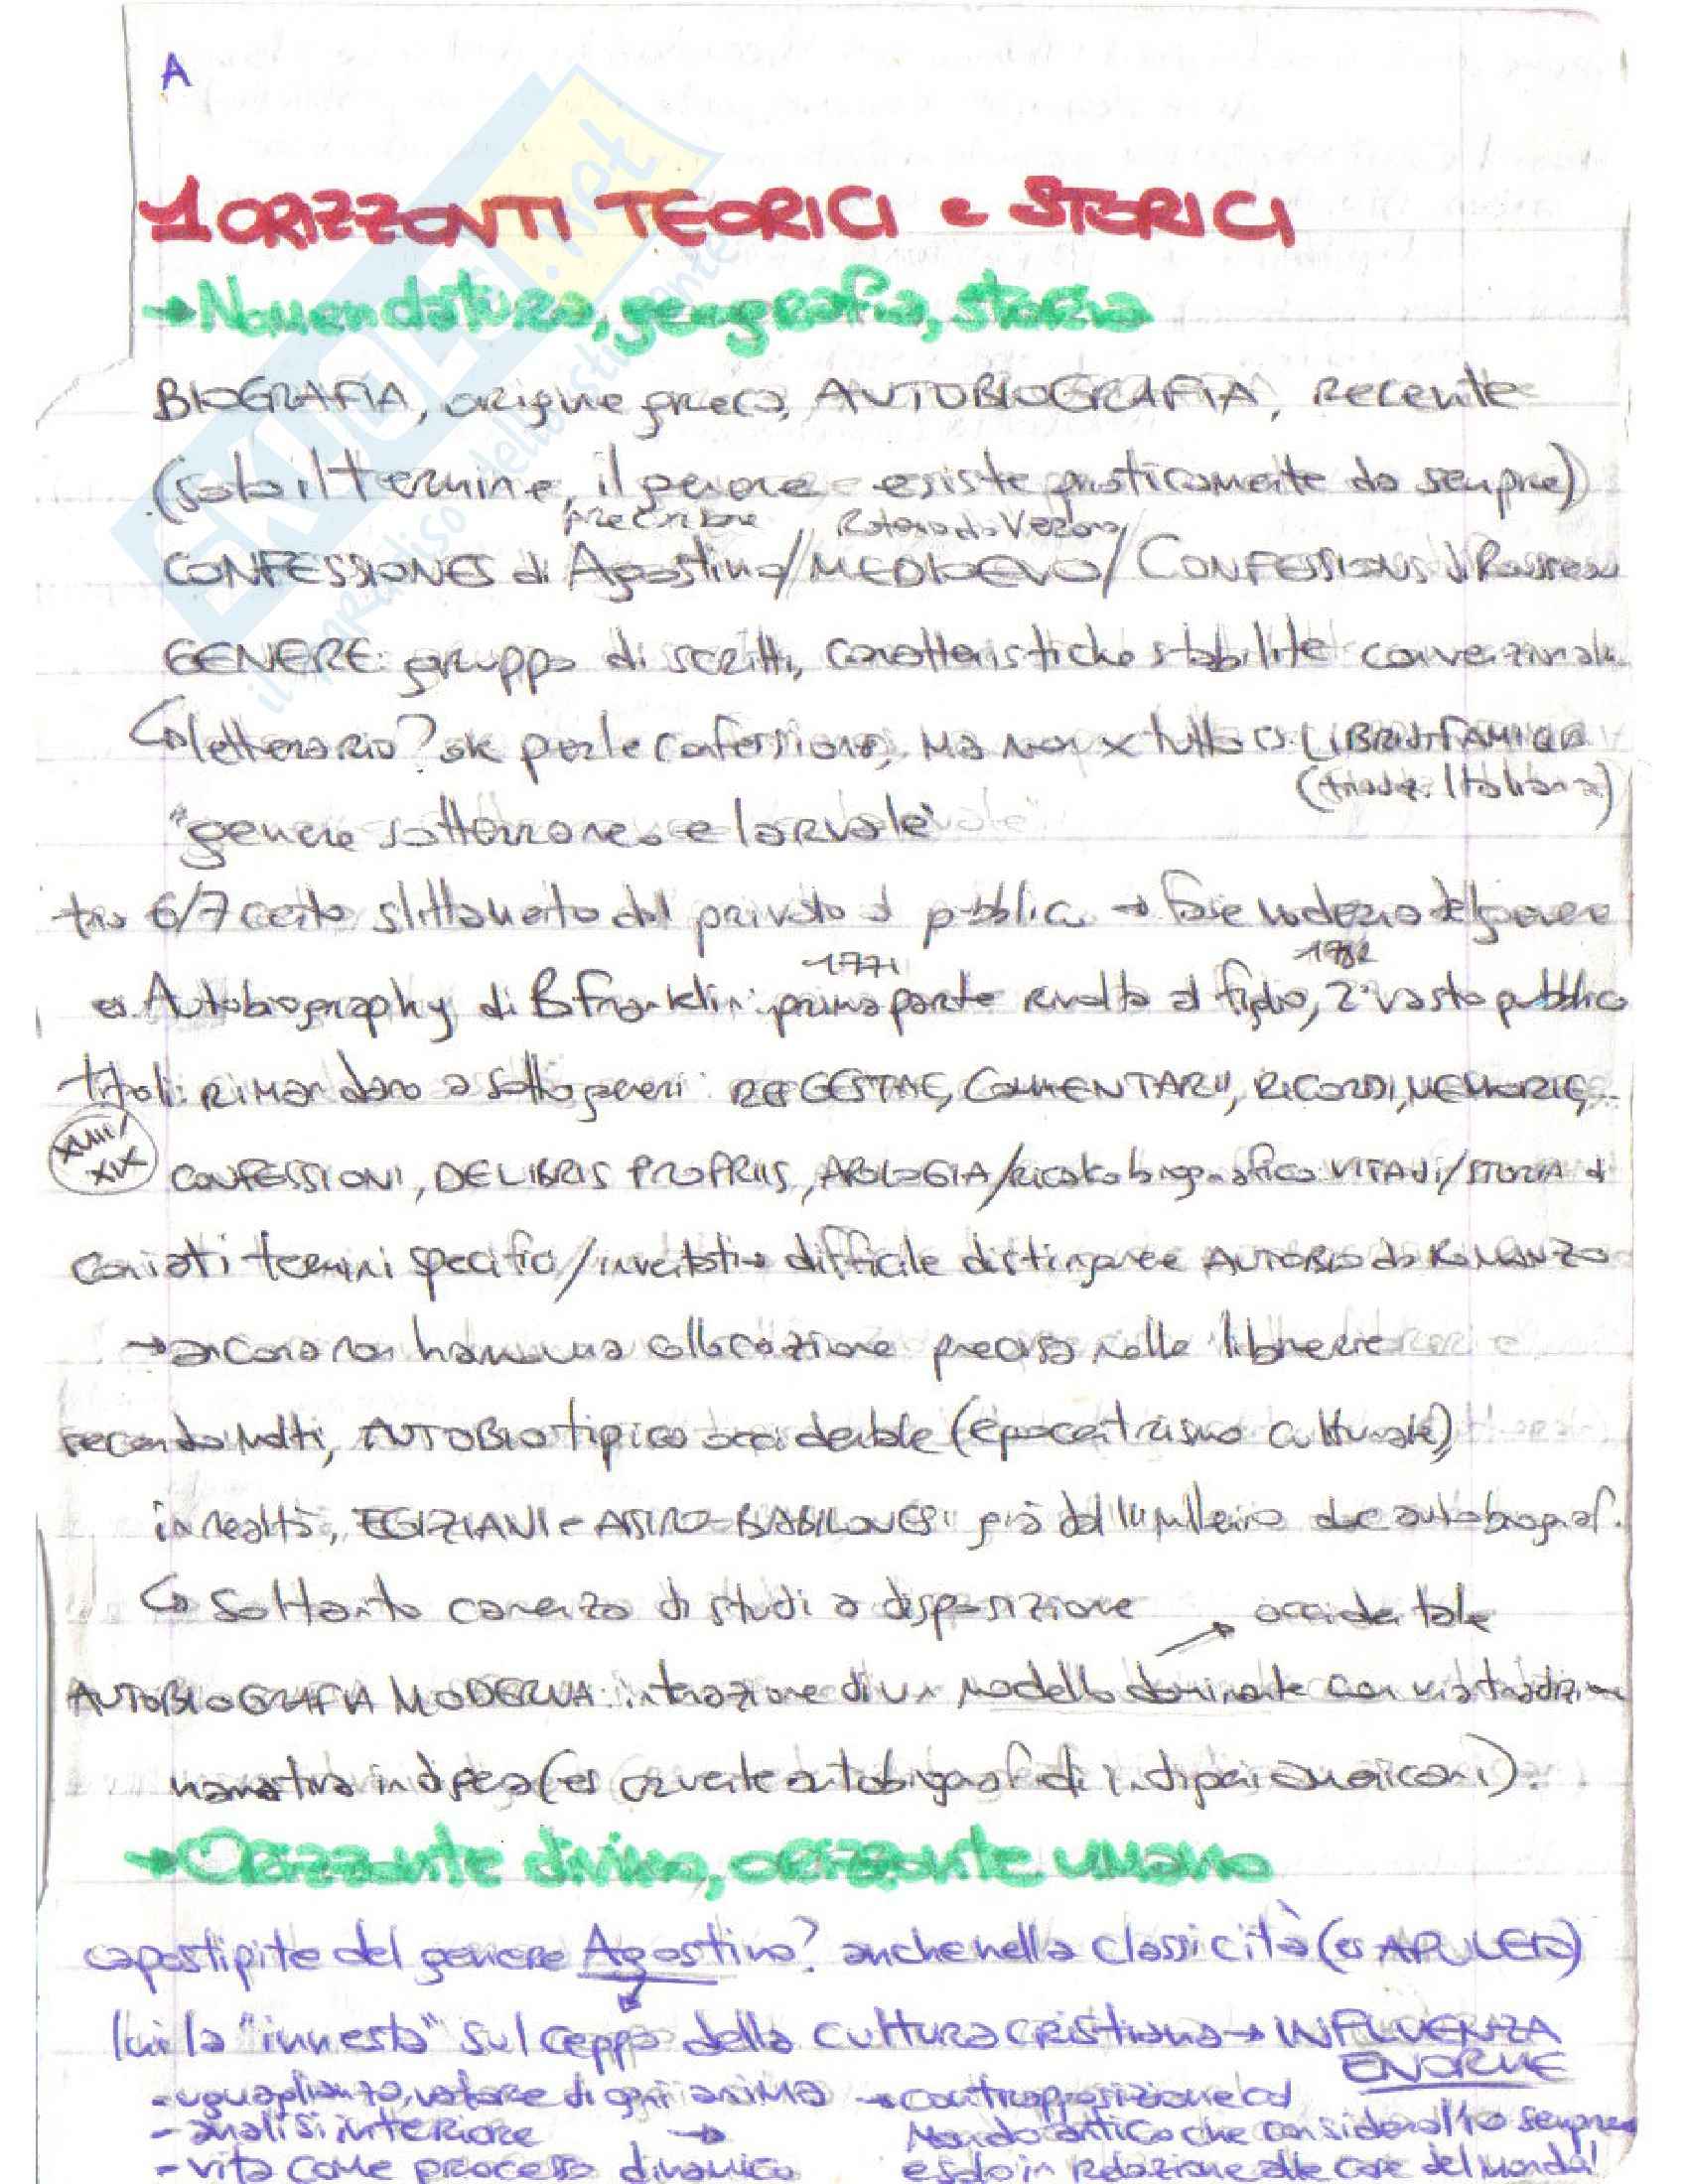 A
1 ORIZZONTI TEORICI e STORICI
→ Nomenclatura, geografia, storia
BIOGRAFIA, origine greca, AUTOBIOGRAFIA, recente
(solo il termine, il genere esiste praticamente da sempre)
Raterio da Verona
CONFESSIONES di Agostino/MEDIOEVO/CONFESSIONS di Rousseau
GENERE: gruppo di scritti, caratteristiche stabilite convenzionalm.
letterario? ok per le confessioni, ma non x tutto es. LIBRI di FAMIGLIA
(tradiz. Italiana)
"genere sotterraneo e larvale"
tra 6/7cento slittamento dal privato al pubblico → fase moderna del genere
1771 1782
es Autobiography di B Franklin: prima parte rivolta al figlio, 2ª vasto pubblico
titoli: rimandano a sottogeneri: RES GESTAE, COMMENTARII, RICORDI, MEMORIE,
XVIII/XIX
CONFESSIONI, DE LIBRIS PROPRIIS, APOLOGIA/ricalco biografico VITA di/STORIA di
coniati termini specifici/inventati → difficile distinguere AUTOBIO da ROMANZO
→ ancora non hanno una collocazione precisa nelle librerie
secondo molti, AUTOBIO tipico occidentale (egocentrismo culturale)
in realtà, EGIZIANI e ASSIRO-BABILONESI già dal II millennio autobiograf.
soltanto carenza di studi a disposizione
occidentale
AUTOBIOGRAFIA MODERNA: interazione di un modello dominante con una tradizione
narrativa indigena (es corrente autobiograf di indigeni americani).
→ Orizzonte divino, orizzonte umano
capostipite del genere Agostino? anche nella classicità (es APULEIO)
lui la "innesta" sul ceppo della cultura cristiana → INFLUENZA
ENORME
- uguaglianza, valore di ogni anima → contrapposizione col
- analisi interiore → mondo antico che considera l'io sempre
- vita come processo dinamico e solo in relazione alle cose del mondo!
SKUOLA.net
il paradiso dello studente